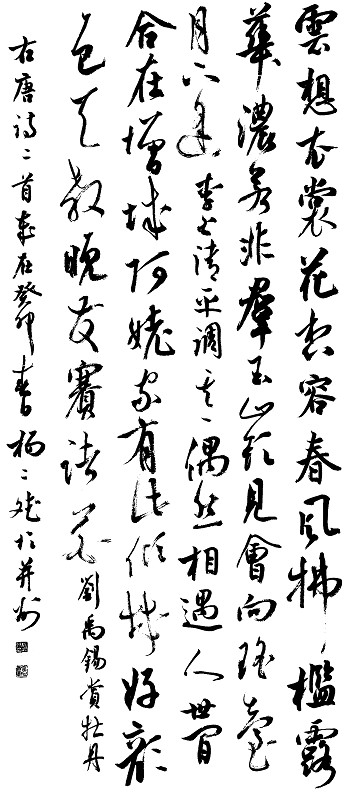 雲想衣裳花想容春風拂檻露
華濃若非羣玉山頭見會向瑤臺
月下逢 李白清平調其一 偶然相遇人世間
合在增城阿姥家有此傾城好顏
色天教晚發賽諸花 劉禹錫賞牡丹
右唐詩二首歲在癸卯春楊於并州